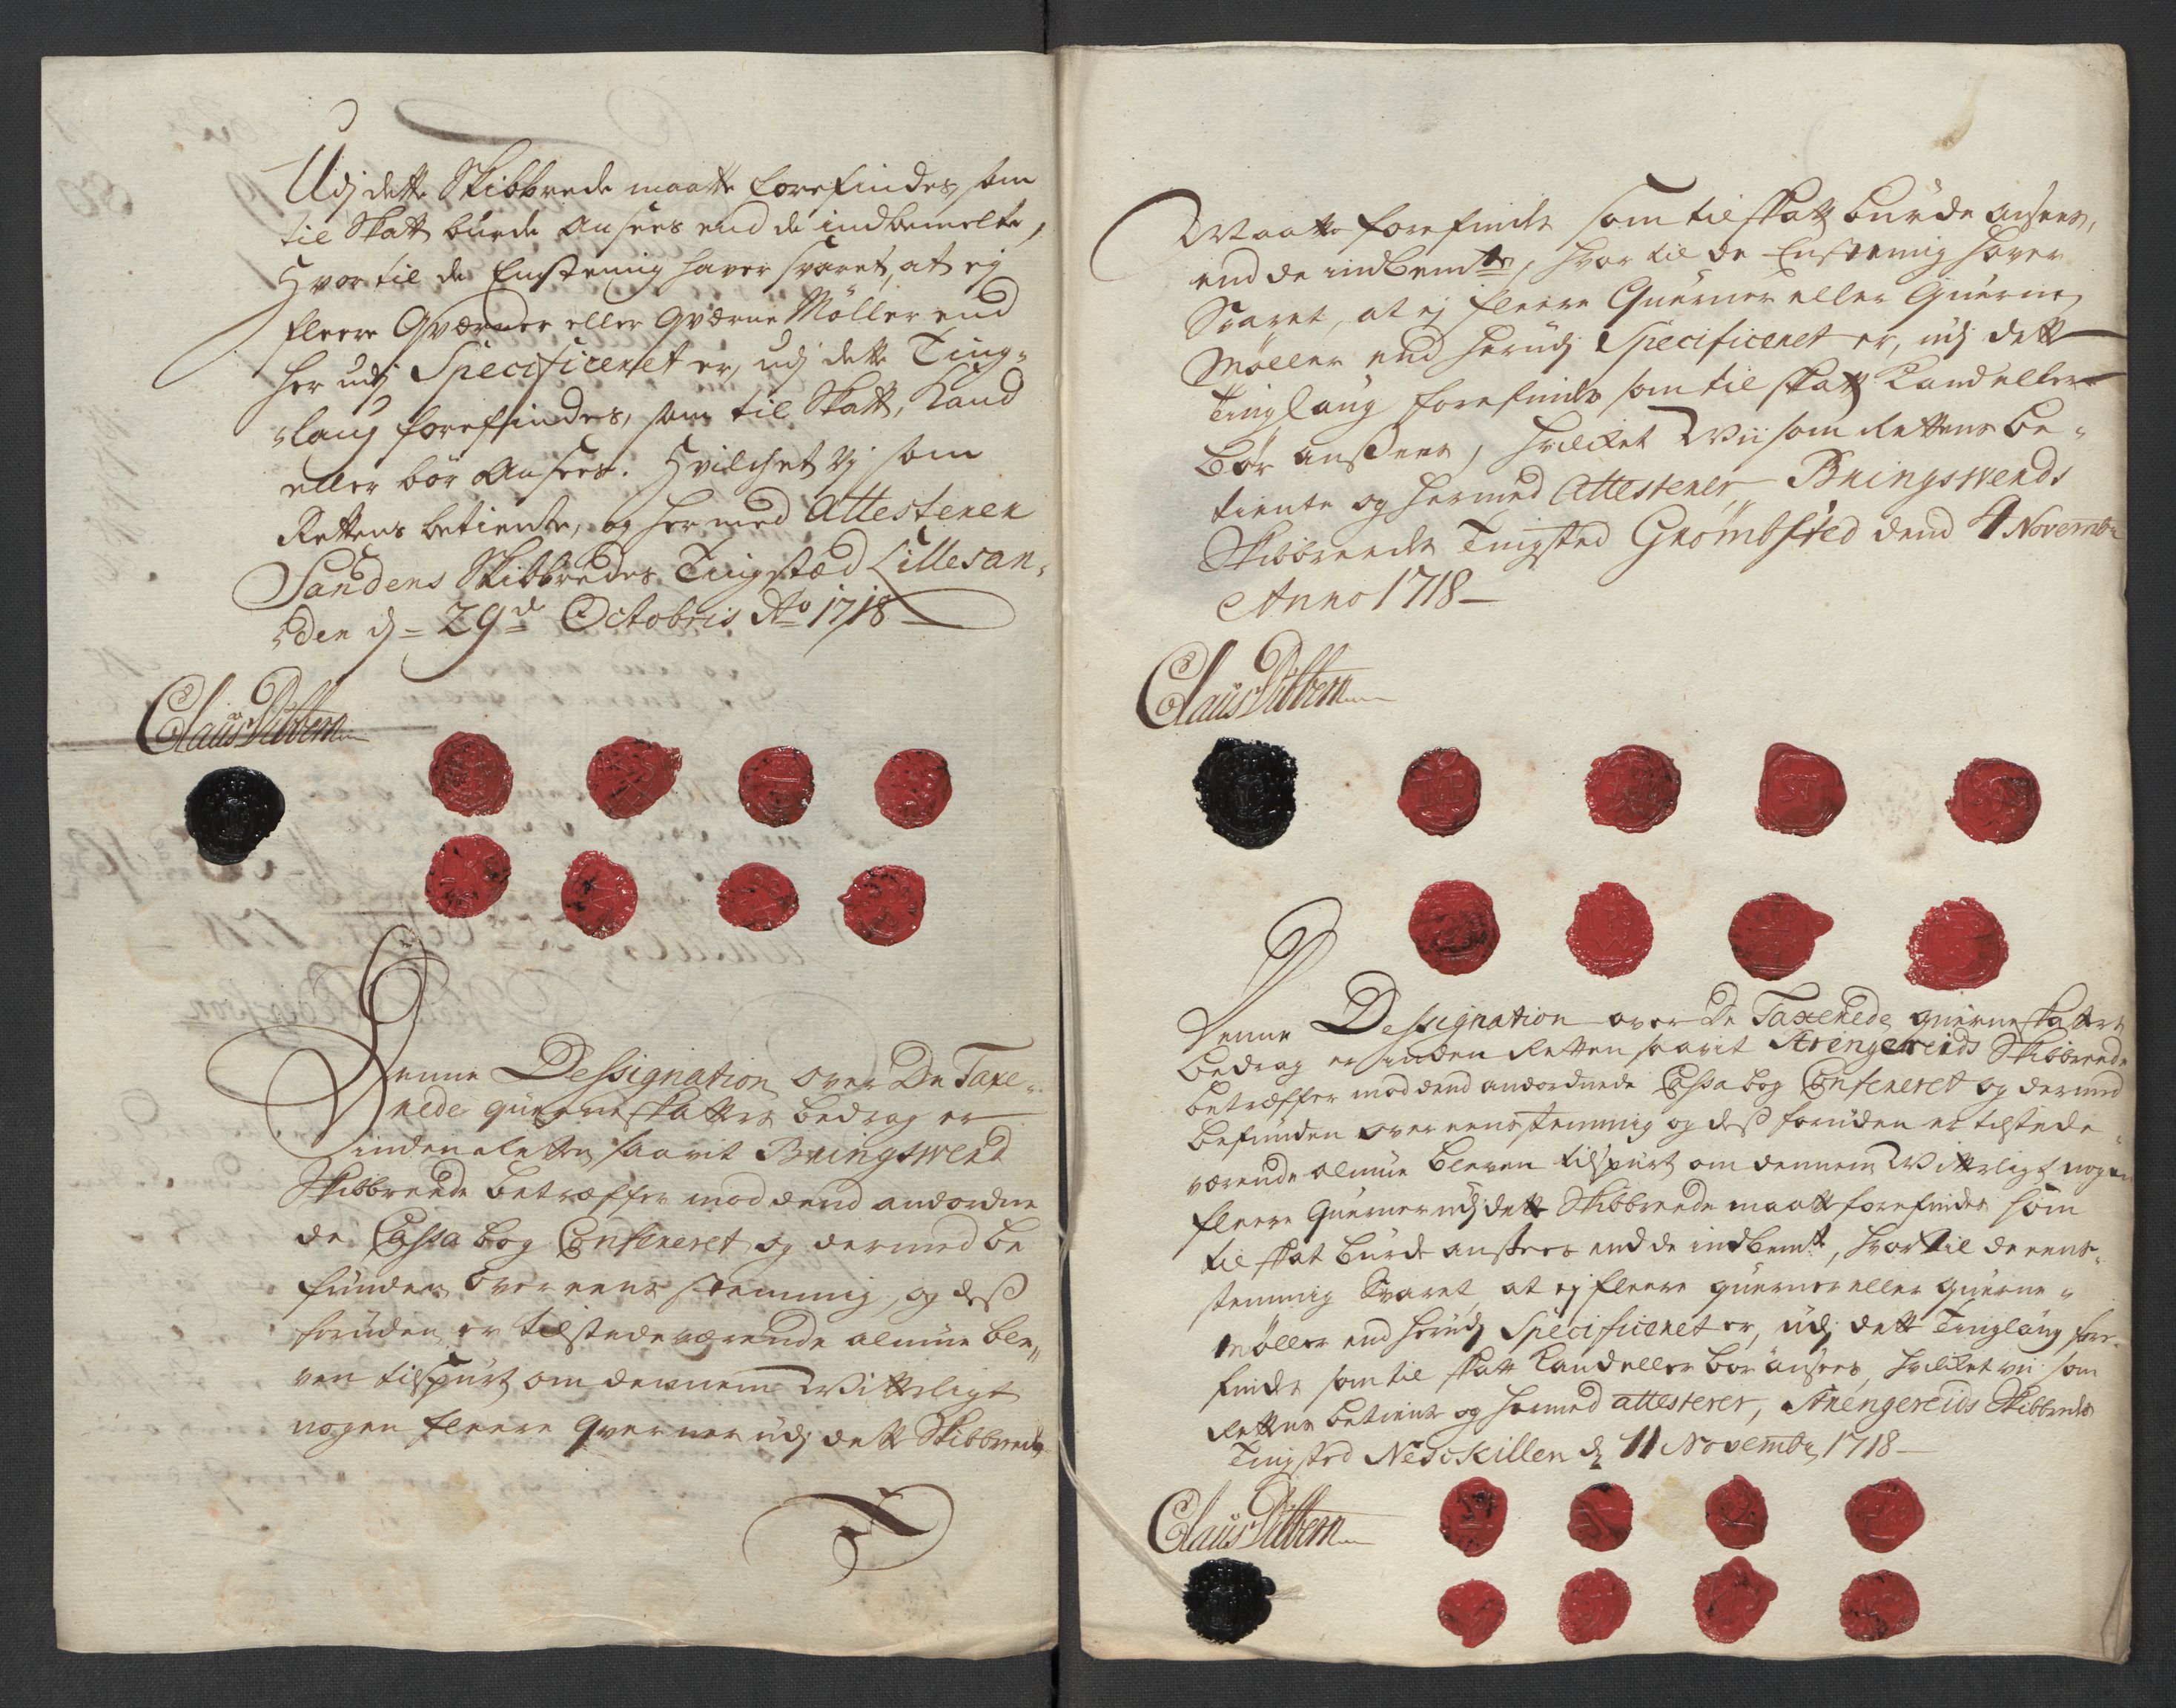 Udj dette Skibbrede maatte forefindes, som
til Skatt burde Ansees end de indbemelte,
Hvortil de Enstemig haver svaret, at ej
fleere Qværner eller Qværne Møller end
her udj Specificeret er, udj dette Ting-
laug forefindes, som til Skatt, Kand
eller bör Ansees. Hvilchet Vj som
Rettens betiente, og hermed Attesterer
Sandens Skibbredes Tingstæd Lillesan-
den d= 29de Octobris Ao 1718
Claus Dibbern
Denne Dessignation over De Taxe-
rede querneskatters bedrag er
inden Retten saavit Bringswerd
Skibbreede betræffer mod dend anordne
de Cassa bog Confereret og dermed be
funden over eens stemmig, og dess
foruden er tilstedeværende almue ble
ven tilspurt om dennem Witterligt
nogen fleere qverner udj dette Skibbrede
Maatte forefinds som til skatt burde ansees,
end de indbemte, hvor til de Enstemig haver
Svaret, at ej fleere Querner eller Querne
Møller end herudj Specificeret er, udj dette
Tinglaug forefinds som til skatt kand eller
bør ansees, hvilket Wii som Rettens be-
tiente og hermed Attesterer, Bringswerds
Skibbreeds Tingsted Grömbsted dend 4 Novembr
Anno 1718
Claus Dibbern
Denne Dessignation over De Taxerede querneskatters
bedrag er inden Retten saavit Strengereids Skibbreede
betræffer mod dend anordnede Cassa bog Confereret og dermed
befunden over eens stemmig og dess foruden er tilstede
værende almue bleven tilspurt om dennem Witterligt nogen
fleere Querner udj dette Skibbreede maatte forefindes som
til skat burde ansees end de indbemte, hvortil de eens-
stemmig Svaret, at ej fleere querner eller querne
Møller end herudj Specificeret er, udj dette Tinglaug fore-
finds som til skatt kand eller bør ansees, hvilket vii som
Rettens betiente og hermed attesterer, Strengereids Skibbreds
Tingsted Nes Killen d 11 Novembr 1718
Claus Dibbern